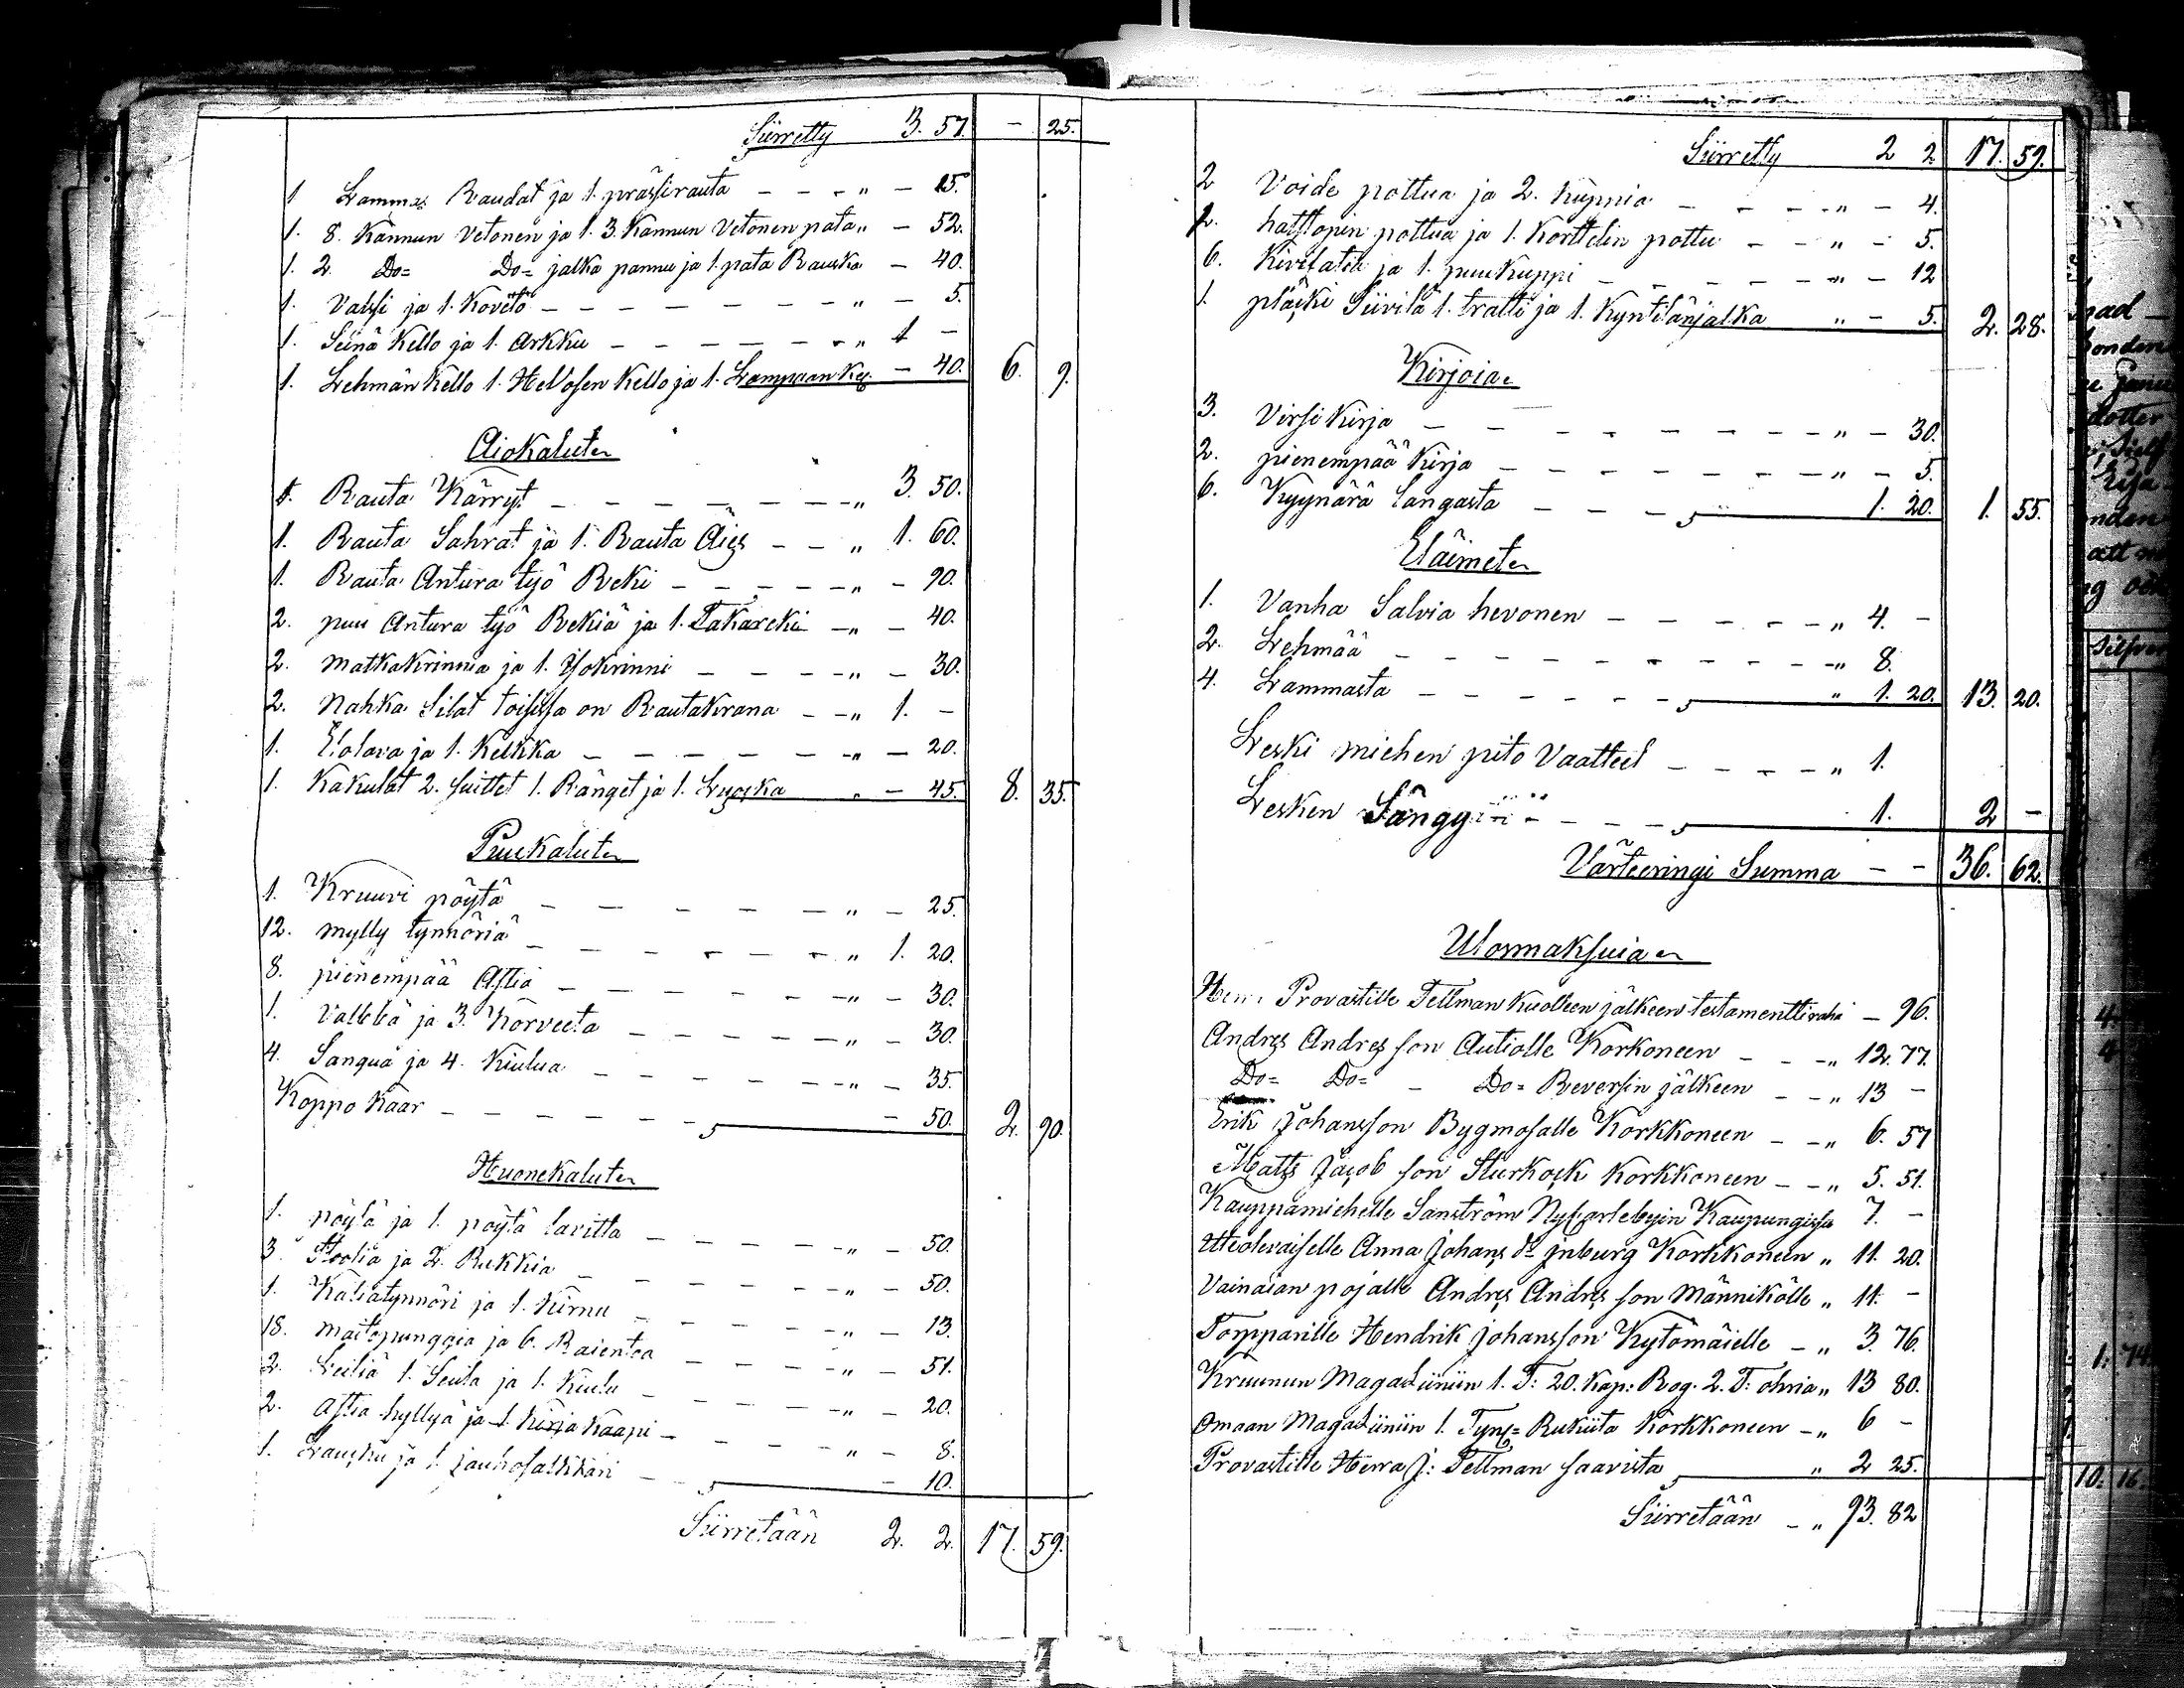 Siirretty 3. 57. - 25.
1 Lammas Raudat ja 1. prässirauta - - - " - 15.
1. 8. Kannun Vetonen ja 1. 3. Kannun Vetonen pata " - 52.
1. 2. Do= Do= jalka pannu ja 1. pata Rauska - 40.
1. Vassi ja 1. Kovëto - - - - - - - " - 5.
1. Seinä Kello ja 1. Arkku - - - - - - " 1 -
1. Lehmän Kello 1. Hevosen Kello ja 1. Lampaan - 40. 6. 9.
Aiokalut
1. Rauta Kärryt - - - - - - " 3. 50.
1. Rauta Sahrat ja 1. Rauta Äies - - " 1. 60.
1. Rauta Antura työ Reki - - - - - " - 90.
2. puu Antura työ Rekiä ja 1. Takareki - " - 40.
2. matkakrinnia ja 1. Isokrinni - - - - " - 30.
2. Nahka Silat toisissa on Rautakrana - - " 1. -
1. Elolava ja 1. Kelkka - - - - - - " - 20.
1. Kakulat 2. suittet 1. Ränget ja 1. Luocka - 45. 8. 35.
Puukalut
1. Kruuvi pöytä - - - - - " - 25.
12. mylly tynnöriä - - - - - - " 1. 20.
8. pienempää Astia - - - - - - " - 30.
1. Valllä ja 3. Korveeta - - - - - " - 30.
4. Sanqua ja 4. Kiulua - - - - - - " - 35.
Koppo Kaar - - - - - - - 50. 2. 90.
Huonekalut
1. pöytä ja 1. pöytä lavitta - - - - - " - 50.
3. Stolia ja 2. Rukkia - - - - - - " - 50.
1. Kaliatynnöri ja 1. Kirnu - - - - - " - 13.
18. maitopunggia ja 6. Raienta - - - - " - 51.
2. Leiliä 1. Seula ja 1. Kiulu - - - - " - 20.
2. Astia hyllyä ja 1. Kirja Kaapi - - - - " - 8.
1. Lauchu ja 1. jauhosalkkari - - - 10.
Siirretään 2. 2. 17. 59.
Siirretty 2 2 17. 59.
2 Voide pottua ja 2. Kuppia - - - - " - 4.
2. halstopin pottua ja 1. Korttelin pottu - - " - 5.
6. Kivifatia ja 1. puukuppi - - - - - " - 12
1. pläcki Siivilä 1. tratti ja 1. Kyntilänjalka " - 5. 2. 28.
Kirjoia
3. Virsikirja - - - - - - - - " - 30.
2. pienempää Kirja - - - - - - - " - 5.
6. Kyynärä langasta - - - 1. 20. 1. 55.
Eläimet
1. Vanha Salvia hevonen - - - - - " 4. -
2. Lehmää - - - - - - - - - " 8.
4. Lammasta - - - - - - " 1. 20. 13. 20.
Leski miehen pito Vaatteet - - - - " 1.
Lesken Sängy - - - 1. 2 -
Värteeringi Summa - - 36. 62.
Ulosmaksuia
Provastille Tellman Kuolleen jälkeen testamenttiraha - 96.
Andrs Andres son Autiolle Korkoneen - - - " 12. 77.
Do= Do= - Do= Reversin jälkeen - - " 13 -
Erik Johansson Bygmosalle Korkkoneen - - " 6. 57
Matts Jacob son Sturkock Korkkoneen - - " 5. 51.
Kauppamiehelle Sanström Nycarlebyin Kaupungissa 7. -
Itteolevaiselle Anna Johans dr Inburg Korkkoneen " 11. 20.
Vainaian pojalle Andrs Andrs son Männikölle " 11. -
Torpparille Hendrik Johansson Kytömäielle - " 3. 76.
Kruunun Magasiiniin 1. T: 20. Kap: Rog. 2. T: ohria " 13 80.
Omaan Magasiiniin 1. Tynr= Rukiita Korkkoneen - " 6 -
Provastille Herra J: Tellman saavista " 2 25.
Siirretään - " 93. 82